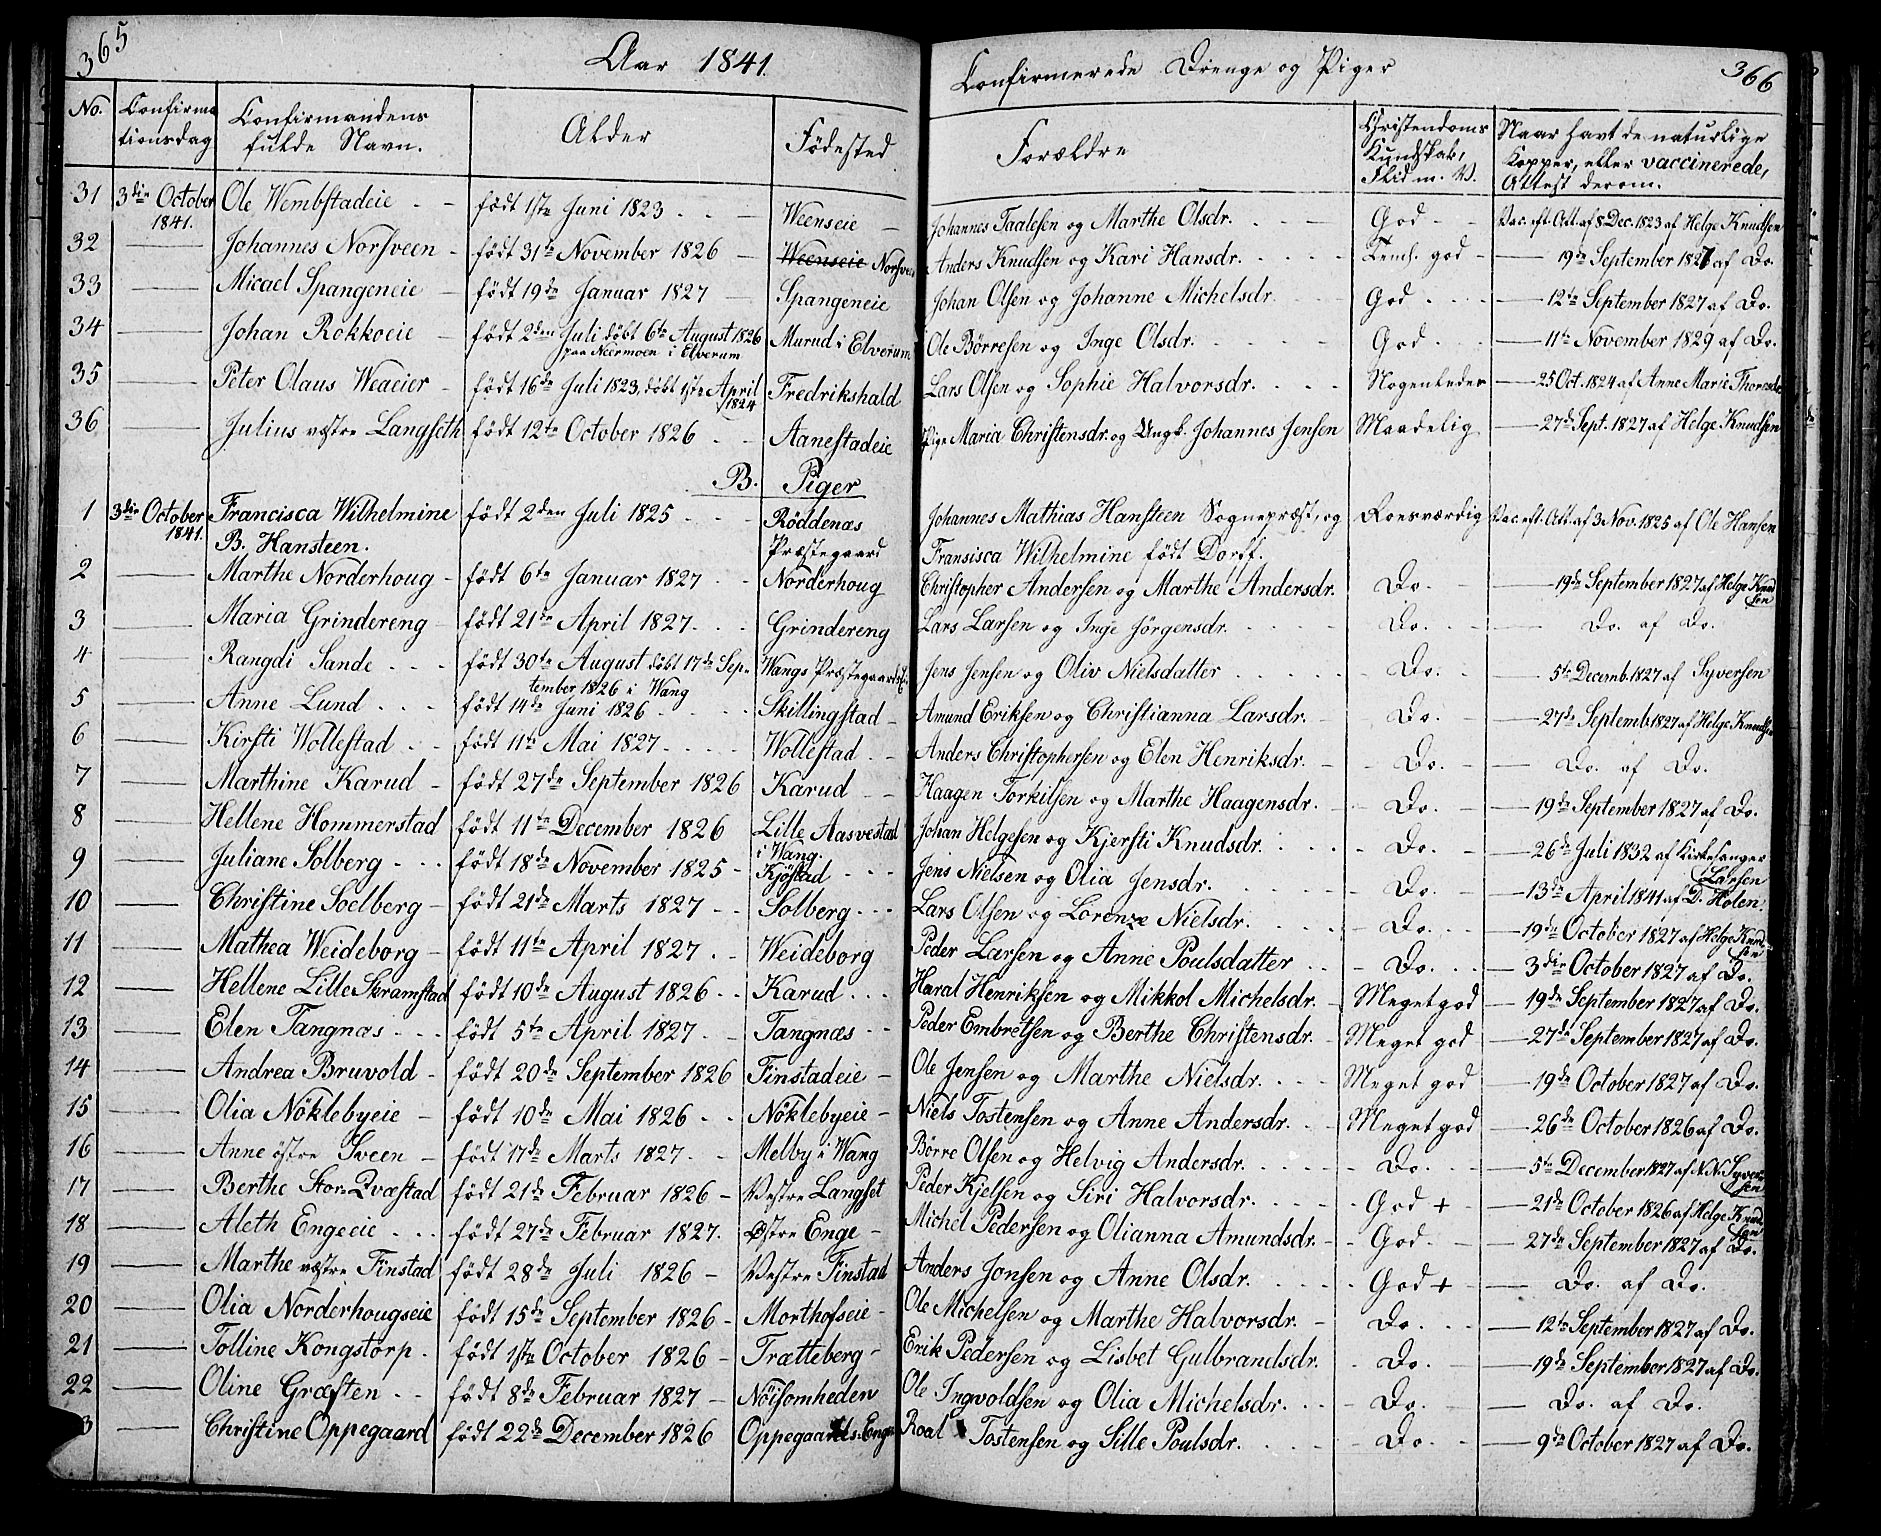 365
Aar 1841.
Confirmerede Drenge og Piger
366
No. | Confirmationsdag | Confirmandens fulde Navn. | Alder | Fødested | Forældre | Christendoms Kundskab, Flid m. V. | Naar havt de naturlige Kopper, eller vaccinerede, Attest derom.
31 | 3die October 1841. | Ole Wembstadeie | født 1ste Juni 1823 | Weenseie | Johannes Taalesen og Marthe Olsdr. | God | Vac. eft. Att. af 8 Dec. 1823 af Helge Knudsen
32 | Johannes Norsveen | født 31te November 1826 | Weenseie Norsveen | Anders Knudsen og Kari Hansdr. | Temk. god | 19de September 1827 af Do.
33 | Micael Spangeneie | født 19de Januar 1827 | Spangeneie | Johan Olsen og Johanne Michelsdr. | God | 12te September 1827 af Do.
34 | Johan Rokkoeie | født 2den Juli døbt 6te August 1826 paa Neermoen i Elverum | Murud i Elverum | Ole Børresen og Inge Olsdr. | God | 11te November 1829 af Do.
35 | Peter Olaus Weaeier | født 16de Juli 1823, døbt 1ste April 1824 | Fredrikshald | Lars Olsen og Sophie Halvorsdr. | Nogenleder | 25 Oct. 1824 af Anne Marie
36 | Julius vestre Langseth | født 12te October 1826 | Aanestadeie | Pige Maria Christensdr. og Ungk. Johannes Jensen | Maadelig | 27de Sept. 1827 af Helge Knudsen
B. Piger
1 | 3die October 1841. | Francisca Wilhelmine B. Hansteen. | født 2den Juli 1825 | Røddenæs Præstegaard | Johannes Mathias Hansteen Sognepræst, og Fransisca Wilhelmine født Dorff. | Roesværdig | Vac. eft. Att. af 3 Nov. 1825 af Ole Hansen
2 | Marthe Norderhoug | født 6te Januar 1827 | Norderhoug | Christopher Andersen og Marthe Andersdr. | Do. | 19de September 1827 af Helge Knudsen
3 | Maria Grindereng | født 21de April 1827 | Grindereng | Lars Larsen og Inge Jørgensdr. | Do. | Do. af Do.
4 | Rangdi Sande | født 30te August døbt 17de September 1826 i Wang | Wangs Præstegaards | Jens Jensen og Oliv Nielsdatter | Do. | 5te Decemb. 1827 af Syversen
5 | Anne Lund | født 14de Juni 1826 | Skillingstad | Amund Eriksen og Christianna Larsdr. | Do. | 27de Septemb. 1827 af Helge Knudsen
6 | Kirsti Wollestad | født 11te Mai 1827 | Wollestad | Anders Christophersen og Elen Henriksdr. | Do. | Do. af Do.
7 | Marthine Karud | født 27de September 1826 | Karud | Haagen Torkilsen og Marthe Haagensdr. | Do. | 19de September 1827 af Do.
8 | Hellene Hommerstad | født 11te December 1826 | Lille Aasvestad i Wang. | Johan Helgesen og Kjersti Knudsdr. | Do. | 26de Juli 1832 af Kirkesanger Larsen
9 | Juliane Solberg | født 18de November 1825 | Kjøstad | Jens Nielsen og Olia Jensdr. | Do. | 13de April 1841 af D. Holen.
10 | Christine Soelberg | født 21de Marts 1827 | Solberg | Lars Olsen og Lorenze Nielsdr. | Do. | 19de October 1827 af Helge Knudsen
11 | Mathea Weideborg | født 11te April 1827 | Weideborg | Peder Larsen og Anne Poulsdatter | Do. | 3die October 1827 af Do.
12 | Hellene Lille Skramstad | født 10de August 1826 | Karud | Haral Henriksen og Mikkol Michelsdr. | Meget god | 19de September 1827 af Do.
13 | Elen Tangnæs | født 5te April 1827 | Tangnæs | Peder Embretsen og Berthe Christensdr. | Meget god | 27de September 1827 af Do.
14 | Andrea Bruvold | født 20de September 1826 | Finstadeie | Ole Jensen og Marthe Nielsdr. | Meget god | 19de October 1827 af Do.
15 | Olia Nøklebyeie | født 10de Mai 1826 | Nøklebyeie | Niels Tostensen og Anne Andersdr. | Meget god | 26de October 1826 af Do.
16 | Anne østre Sveen | født 17de Marts 1827 | Melby i Wang | Børre Olsen og Helvig Andersdr. | Do. | 5te December 1827 af N.N. Syversen
17 | Berthe Stor-Qvæstad | født 21de Februar 1826 | Vestre Langset | Peder Kjelsen og Siri Halvorsdr. | God + | 21de October 1826 af Helge Knudsen
18 | Aleth Engeeie | født 27de Februar 1827. | Østre Enge | Michel Pedersen og Olianna Amundsdr. | God | 27de September 1827 af Do.
19 | Marthe vestre Finstad | født 28de Juli 1826 | Vestre Finstad | Anders Jonsen og Anne Olsdr. | God + | Do. af Do.
20 | Olia Norderhougseie | født 15de September 1826 | Morthofseie | Ole Michelsen og Marthe Halvorsdr. | Do. | 12te September 1827 af Do.
21 | Tolline Kongstorp | født 1ste October 1826 | Trætteberg | Erik Pedersen og Lisbet Gulbrandsdr. | Do. | 19de September 1827 af Do.
22 | Oline Græsten | født 8de Februar 1827 | Nøisomheden | Ole Ingvoldsen og Olia Michelsdr. | Do. | Do. af Do.
3 | Christine Oppegaard | født 22de December 1826 | Oppegaards-Enge | Roal Tostensen og Sille Poulsdr. | Do. | 9de October 1827 af Do.